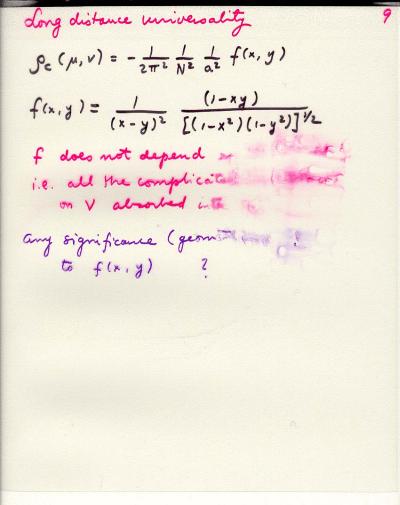 Long distance universality 9
ρc (μ, ν) = - 1/2π² 1/N² 1/a² f(x, y)
f(x, y) = 1/(x-y)² (1-xy)/[(1-x²)(1-y²)]^1/2
f does not depend
i.e. all the
on V absorbed
any significance (
to f(x, y) ?